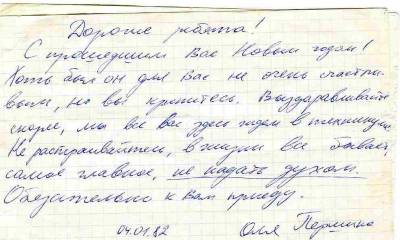 Дорогие ребята!
С прошедшим Вас Новым годом!
Хоть был он для Вас не очень счастли-
вым, но вы крепитесь. Выздоравливайте
скорее, мы все вас здесь ждем в техникуме.
Не расстраивайтесь, в жизни все бывает,
самое главное, не падать духом.
Обязательно к вам приеду.
04.01.82 Оля